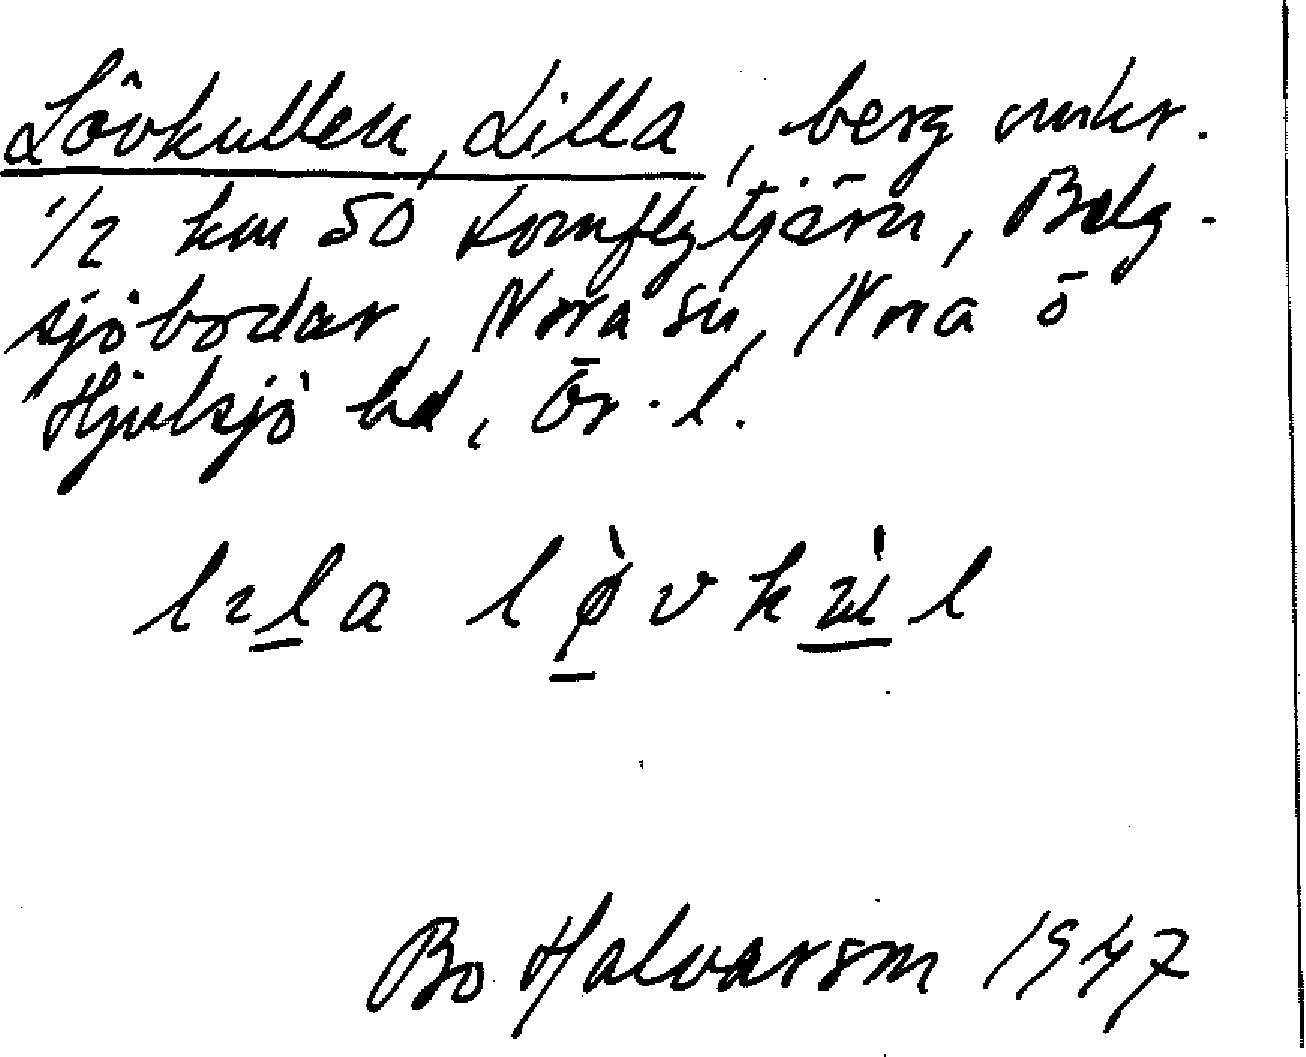 Lövkullen, Lilla, berg omkr.
1/2 km SO Kornflytjärn, Bälg-
sjöbodar, Nora sn, Nora o
Hjulsjö hd, Ör. l.
lɩla lø̀vkùl
Bo Halvarson 1947